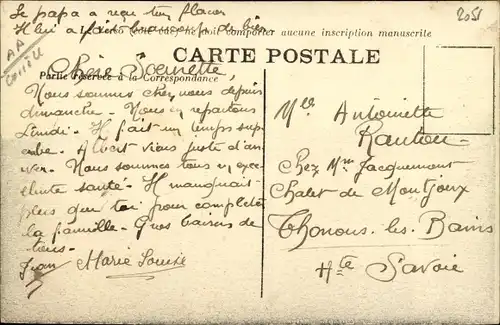 Le papa a reçu ton flacon
Il lui a fait beaucoup de bien
aucune inscription manuscrite
2051
AA
CARTE POSTALE
Partie réservée à la Correspondance
Chère Toinette,
Nous sommes chez nous depuis
dimanche - Nous en repartons
Lundi - Il fait un temps sup
erbe. Albert vient juste d'arri
ver. Nous sommes tous en exce
llente santé. Il manquait
plus que toi pour completer
la famille - Gros baisers de
tous -
Jean Marie Louise
Melle Antoinette
Chez Mme Jacquemont
Chalet de Montjoux
Thonons. les. Bains
Hte Savoie